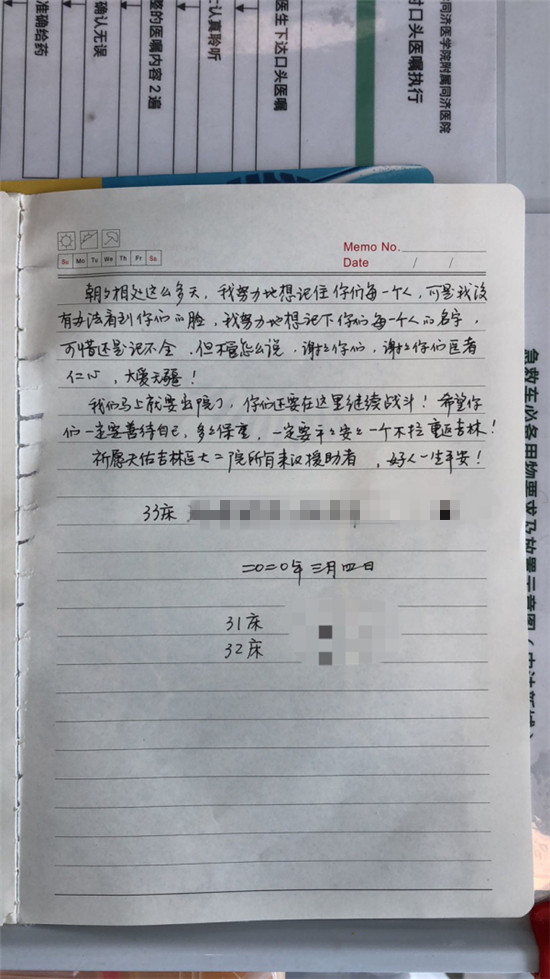 同济医学院附属同济医院
对口头医嘱执行
医生下达口头医嘱
认真聆听
整的医嘱内容2遍
确认无误
准确给药
Memo No.
Su Mo Tu We Th Fr Sa
Date / /
朝夕相处这么多天，我努力地想记住你们每一个人，可是我没
有办法看到你们的脸，我努力地想记下你们每一个人的名字，
可惜还是记不全，但不管怎么说，谢谢你们，谢谢你们医者
仁心，大爱无疆！
我们马上就要出院了，你们还要在这里继续战斗！希望你
们一定要善待自己，多多保重，一定要平平安安一个不拉重返吉林！
祈愿天佑吉林医大二院所有来汉援助者，好人一生平安！
33床
二〇二〇年三月四日
31床
32床
急救车必备用物要求及放置示意图（中法新城）